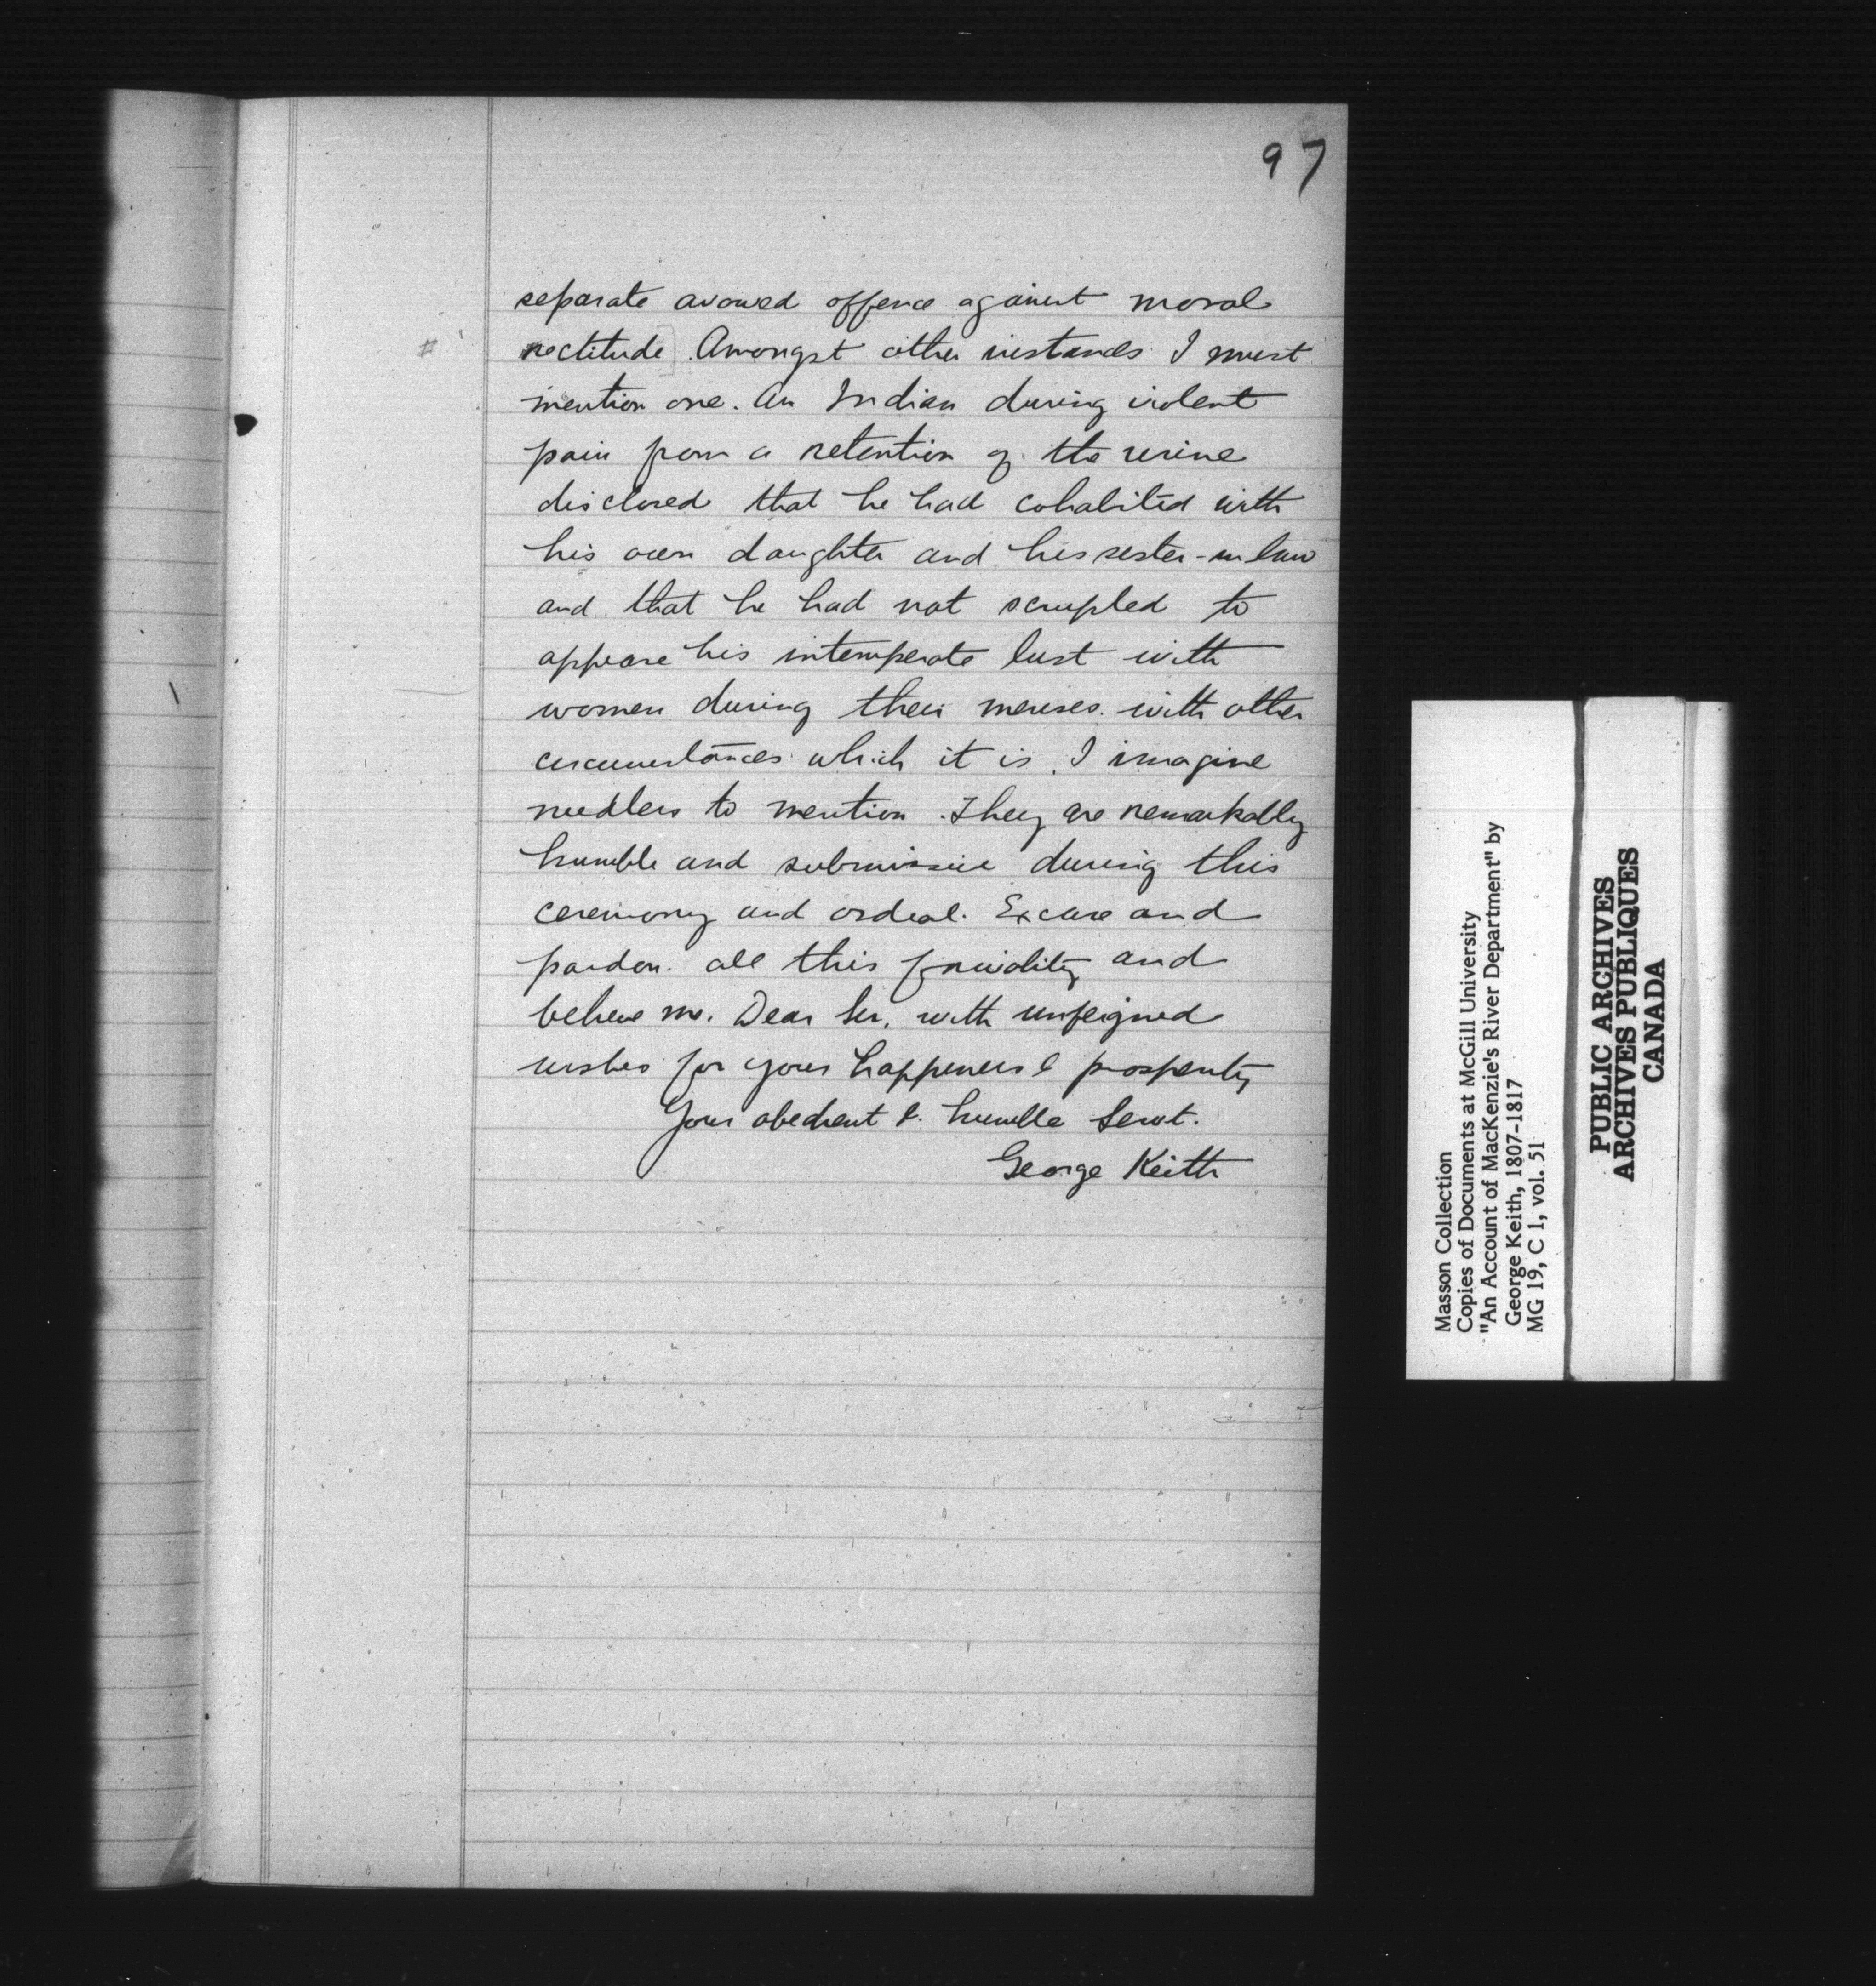 97
separate avowed offence against moral
# rectitude]. Amongst other instances I must
mention one. An Indian during violent
pain from a retention of the urine
disclosed that he had cohabited with
his own daughter and his sister-in law
and that he had not scrupled to
appease his intemperate lust with
women during their menses. with other
circumstances which it is, I imagine
needless to mention. They are remarkably
humble and submissive during this
ceremony and ordeal. Excuse and
pardon all this frivolity and
believe me. Dear Sir, with unfeigned
wishes for your happiness & prosperity
Your obedient & humble Servt.
George Keith
Masson Collection
Copies of Documents at McGill University
"An Account of MacKenzie's River Department" by
George Keith, 1807-1817
MG 19, C 1, vol. 51
PUBLIC ARCHIVES
ARCHIVES PUBLIQUES
CANADA